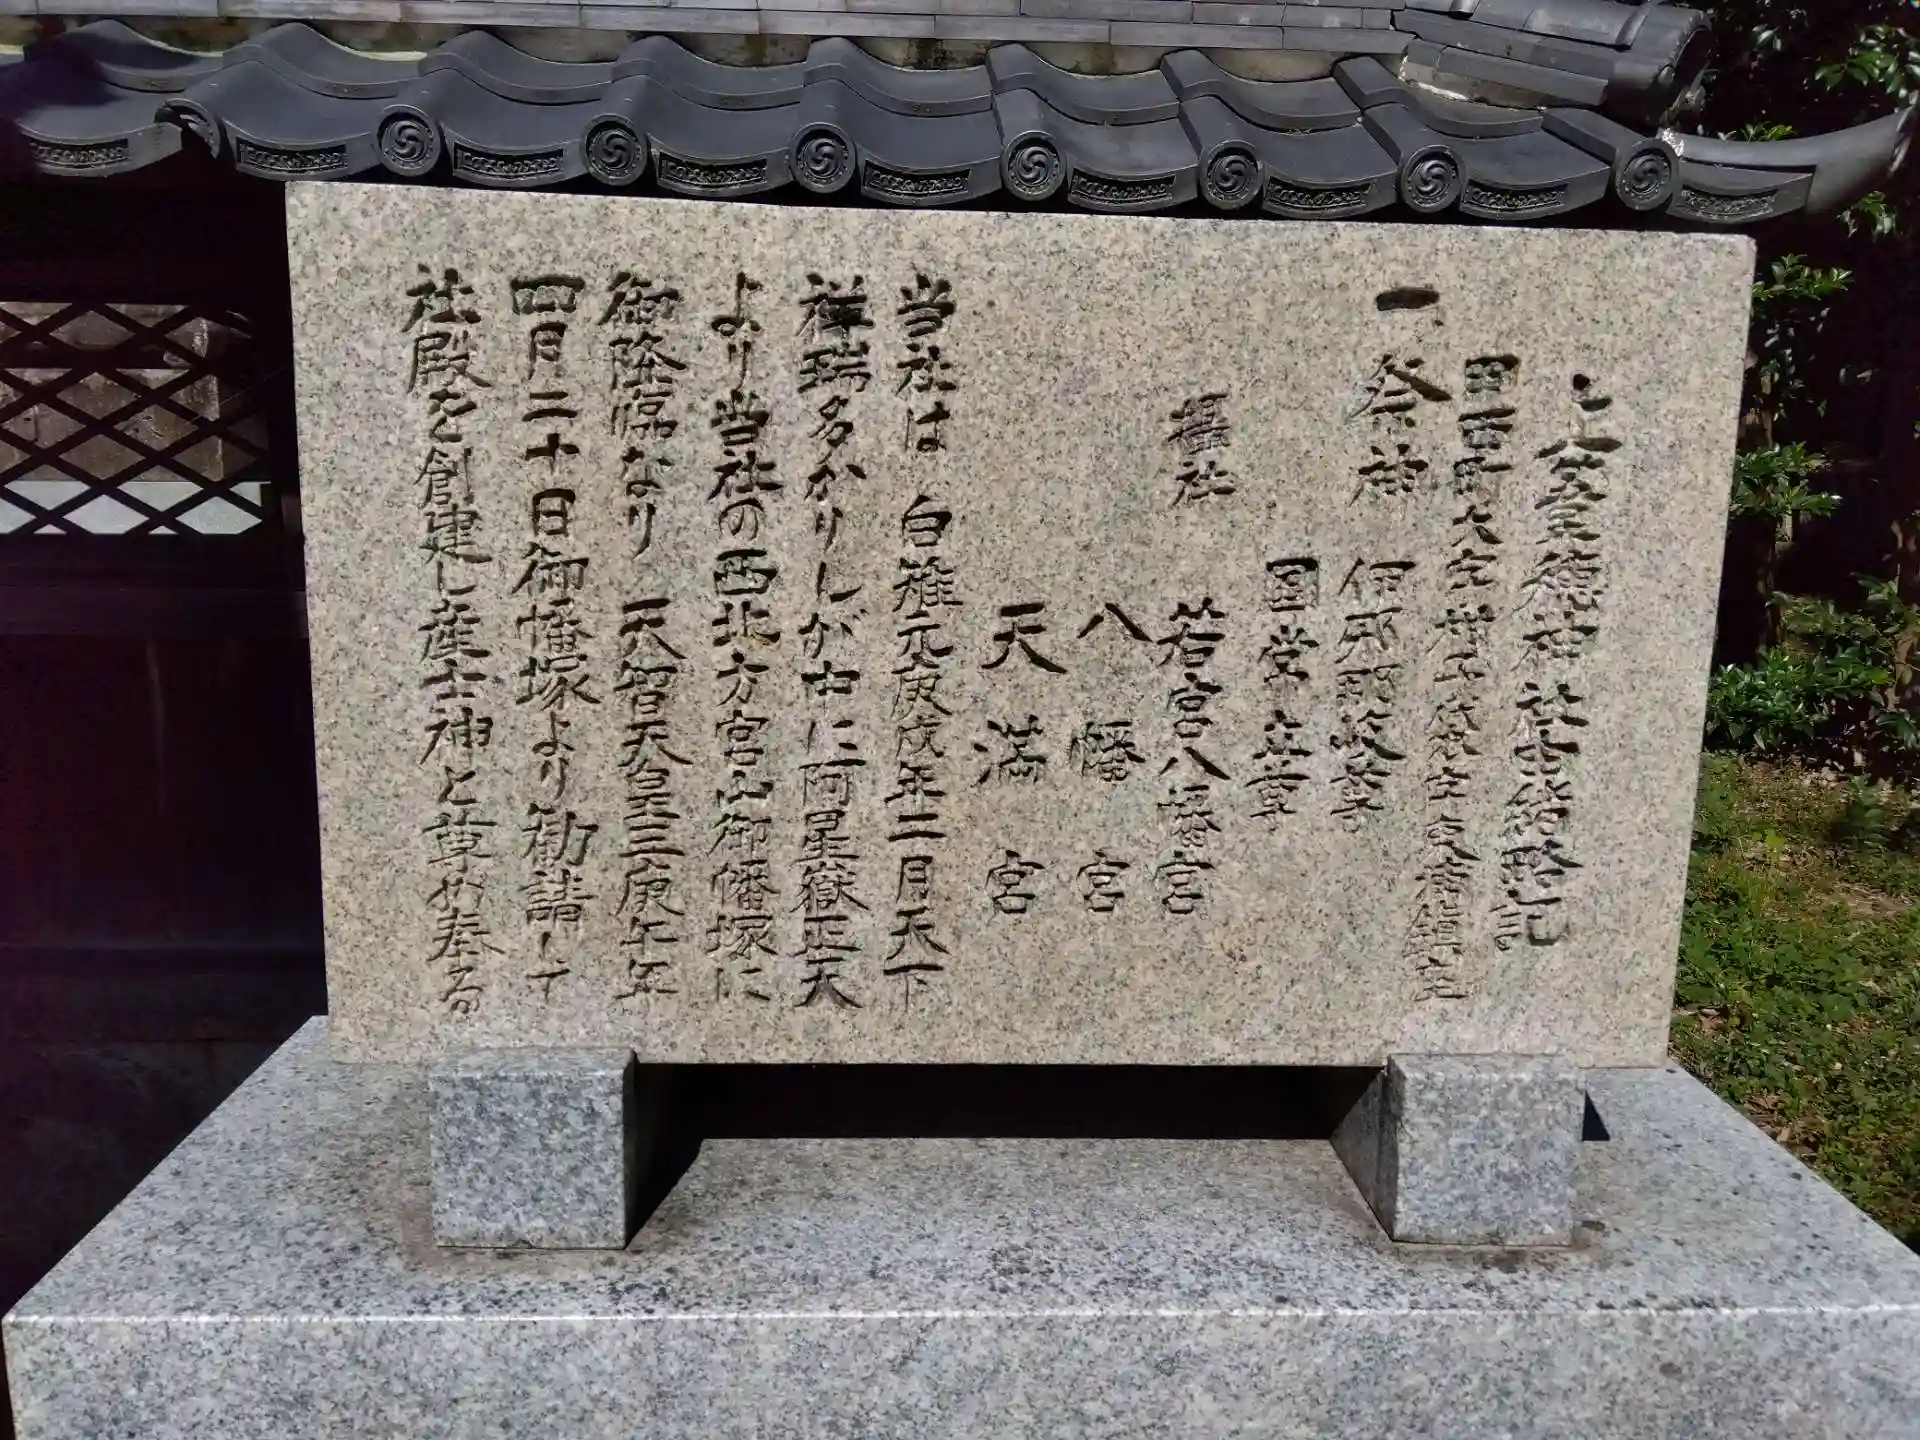 上葦穂神社由緒略記
甲西町大字柑子袋字東鎮座
一祭神 伊邪那岐尊
国常立尊
攝社 若宮八幡宮
八幡宮
天満宮
当社は 白雉元庚戌年二月天下
祥瑞多かりしが中に阿星嶽正天
より当社の西北方宮山御幡塚に
御降臨なり 天智天皇三庚午年
四月二十日御幡塚より勧請して
社殿を創建し産土神と尊め奉る